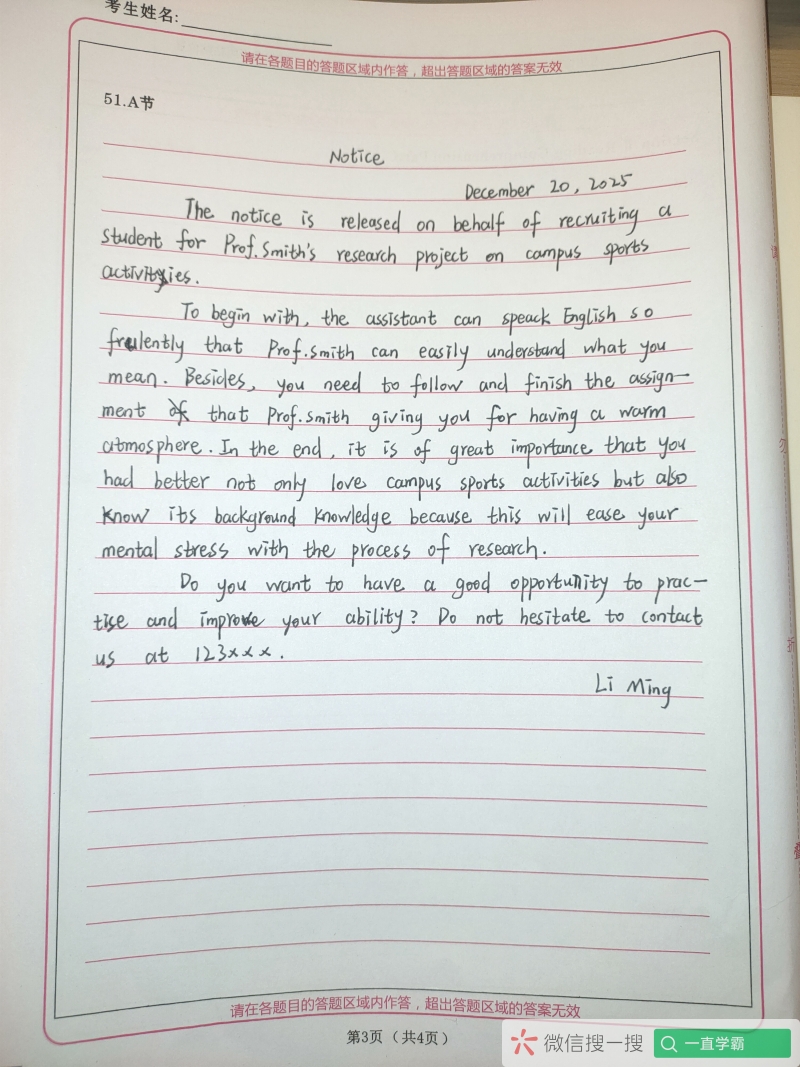 考生姓名:
请在各题目的答题区域内作答，超出答题区域的答案无效
51.A节
Notice
December 20, 2025
The notice is released on behalf of recruiting a
student for Prof.Smith's research project on campus sports
activities.
To begin with, the assistant can speack English so
frulently that Prof.Smith can easily understand what you
mean. Besides, you need to follow and finish the assign-
ment that Prof.Smith giving you for having a warm
atmosphere. In the end, it is of great importance that you
had better not only love campus sports activities but also
know its background knowledge because this will ease your
mental stress with the process of research.
Do you want to have a good opportunity to prac-
tise and improve your ability? Do not hesitate to contact
us at 123xxx.
Li Ming
请在各题目的答题区域内作答，超出答题区域的答案无效
第3页（共4页）
微信搜一搜
一直学霸